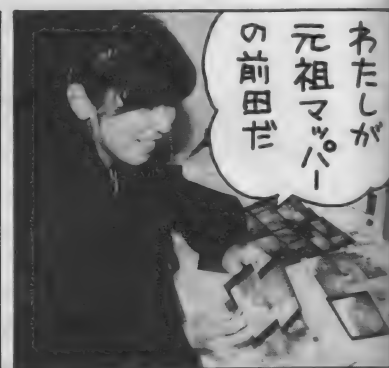 わたしが
元祖マッパー
の前田だ!